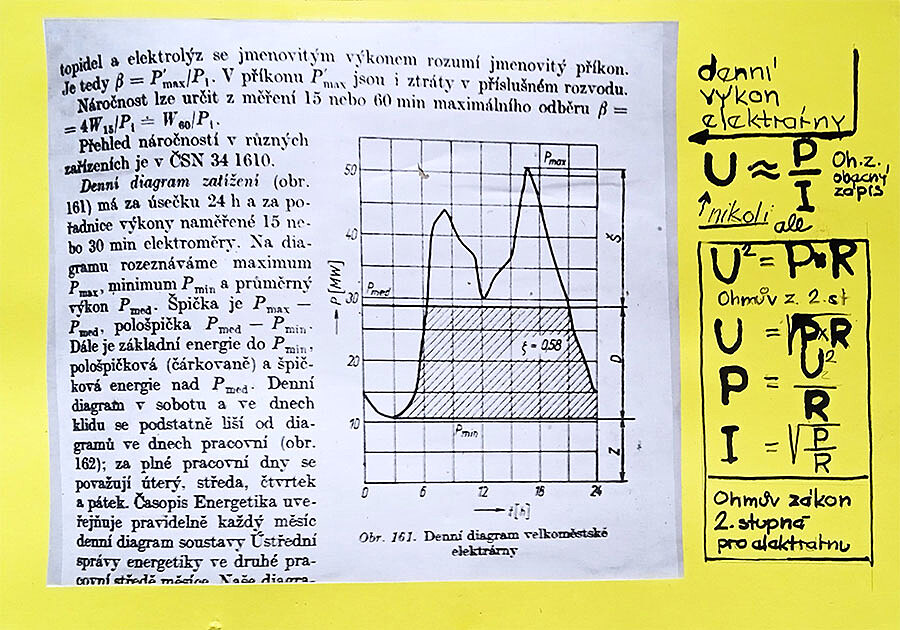 topidel a elektrolýz se jmenovitým výkonem rozumí jmenovitý příkon.
Je tedy β = P'max/P1. V příkonu P'max jsou i ztráty v příslušném rozvodu.
Náročnost lze určit z měření 15 nebo 60 min maximálního odběru β =
= 4W15/P1 ≐ W60/P1.
Přehled náročností v různých
zařízeních je v ČSN 34 1610.
Denní diagram zatížení (obr.
161) má za úsečku 24 h a za po-
řadnice výkony naměřené 15 ne-
bo 30 min elektroměry. Na dia-
gramu rozeznáváme maximum
Pmax, minimum Pmin a průměrný
výkon Pmed. Špička je Pmax −
Pmed, pološpička Pmed − Pmin.
Dále je základní energie do Pmin,
pološpičková (čárkovaně) a špič-
ková energie nad Pmed. Denní
diagram v sobotu a ve dnech
klidu se podstatně liší od dia-
gramů ve dnech pracovní (obr.
162); za plné pracovní dny se
považují úterý, středa, čtvrtek
a pátek. Časopis Energetika uve-
řejňuje pravidelně každý měsíc
denní diagram soustavy Ústřední
správy energetiky ve druhé pra-
covní středě měsíce. Naše diagra-
P [MW]
50
40
30
20
10
Pmax
Pmed
Pmin
ξ = 0,58
Š
D
Z
0 6 12 18 24
t [h]
Obr. 161. Denní diagram velkoměstské
elektrárny
denní
výkon
elektrárny
U ≈ P/I Oh.z.
obecný
zápis
nikoli
ale
U² = P×R
Ohmův z. 2.st
U = √P×R
P = U²/R
I = √P/R
Ohmův zákon
2. stupná
pro elaktrárnu